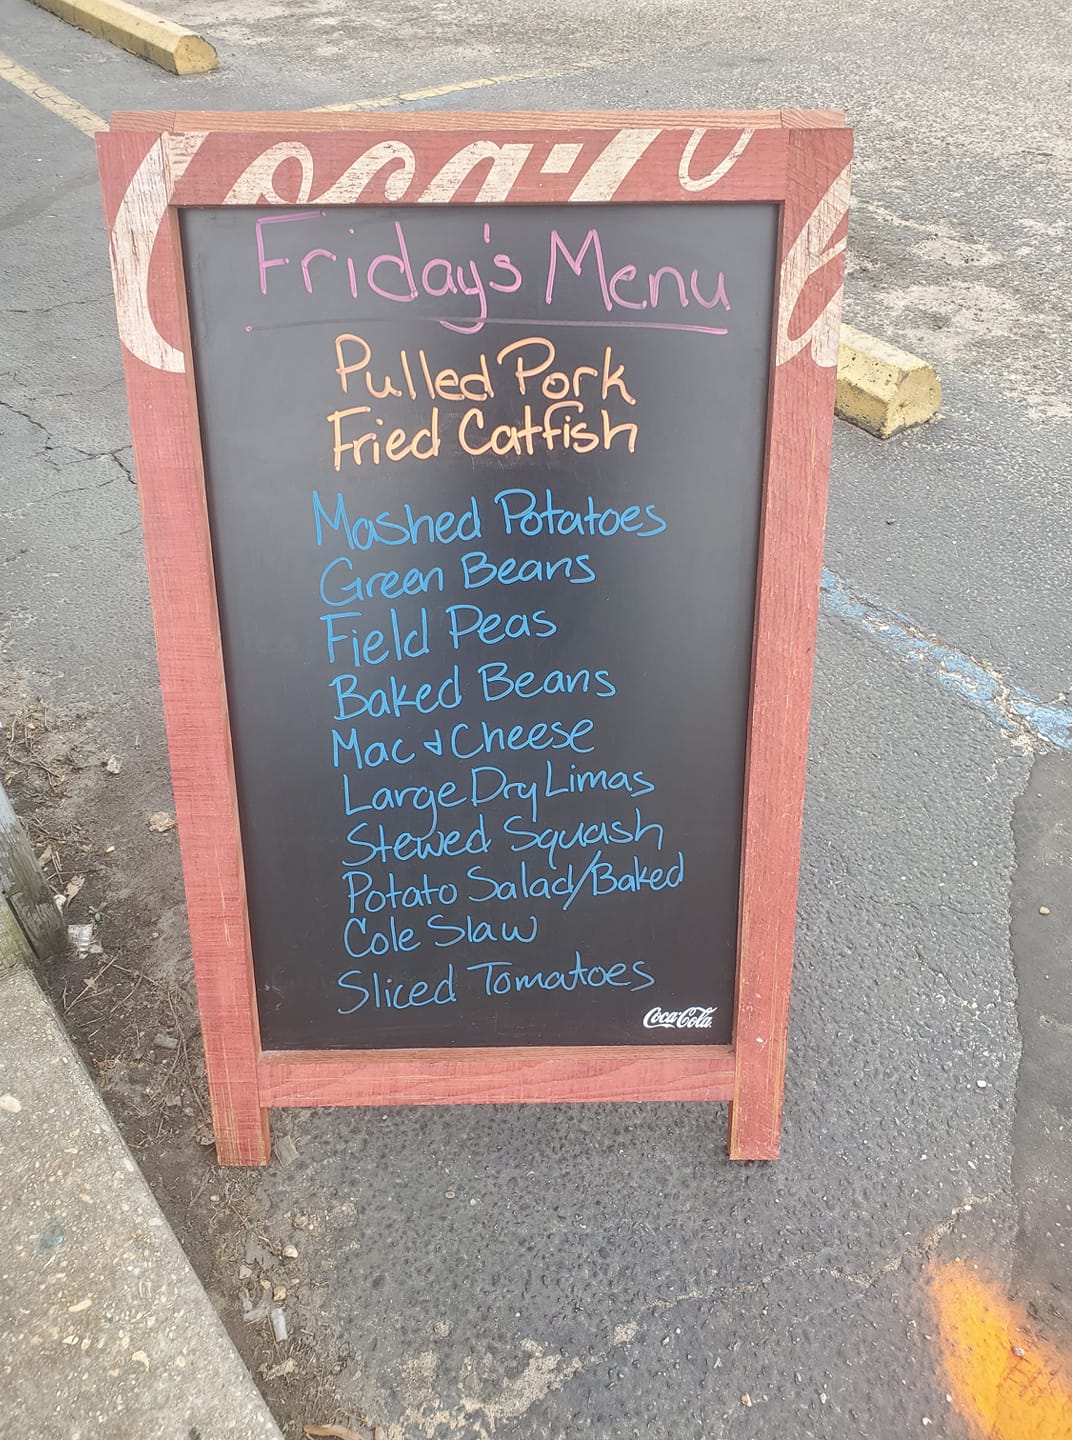 Coca-Co
Friday's Menu
Pulled Pork
Fried Catfish
Mashed Potatoes
Green Beans
Field Peas
Baked Beans
Mac & Cheese
Large Dry Limas
Stewed Squash
Potato Salad/Baked
Cole Slaw
Sliced Tomatoes
Coca-Cola